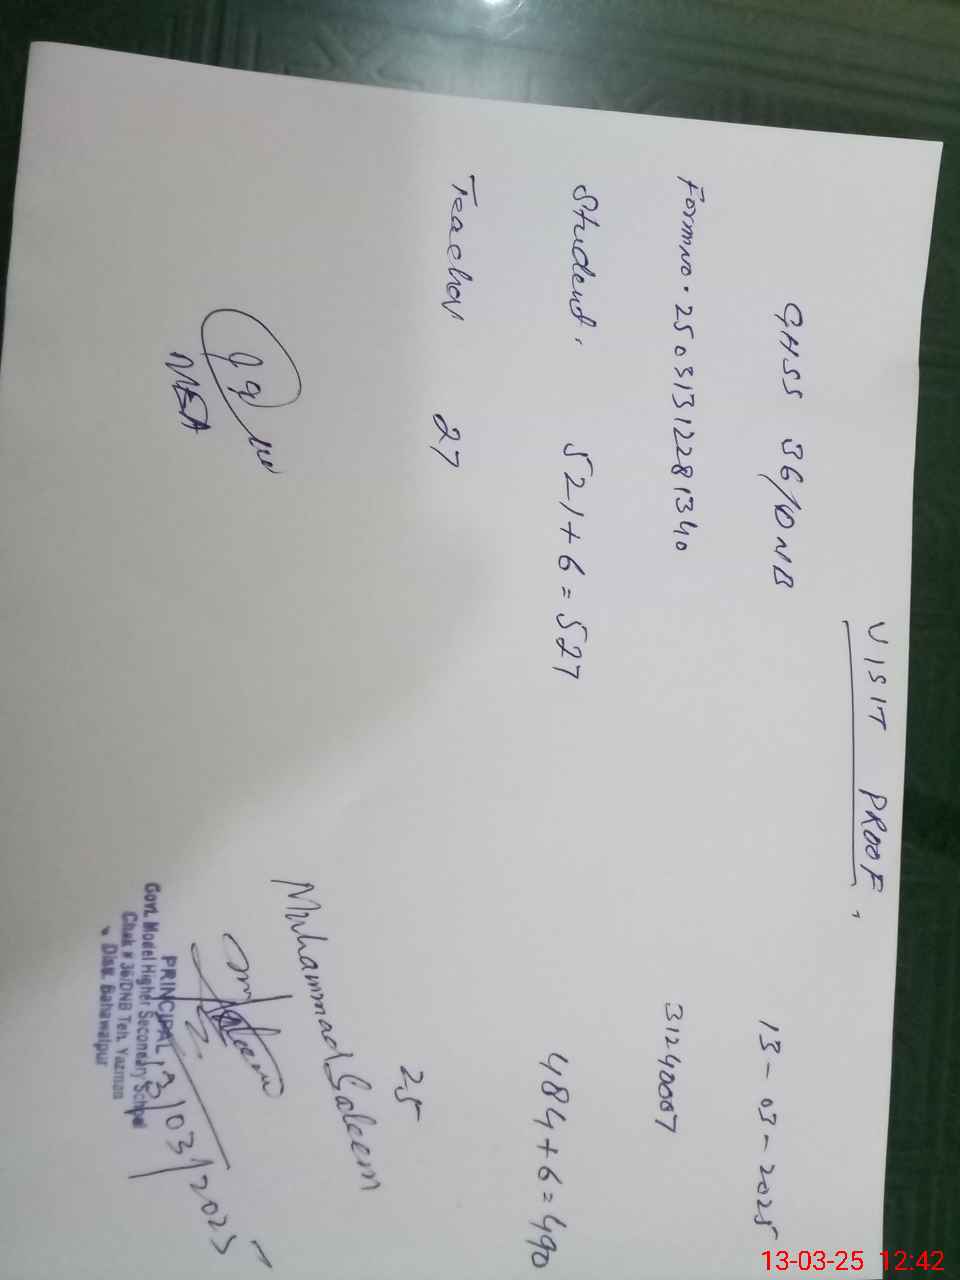 VISIT PROOF,
GHSS 36/DNB 13-03-2025
Formno. 25031312281340 31240007
Student. 521+6=527 484+6=490
Teacher 27 25
MEA
Muhammad Saleem
13/03/2025
PRINCIPAL
Govt. Model Higher Secondary School
Chak # 36/DNB Teh. Yazman
Distt. Bahawalpur
13-03-25 12:42